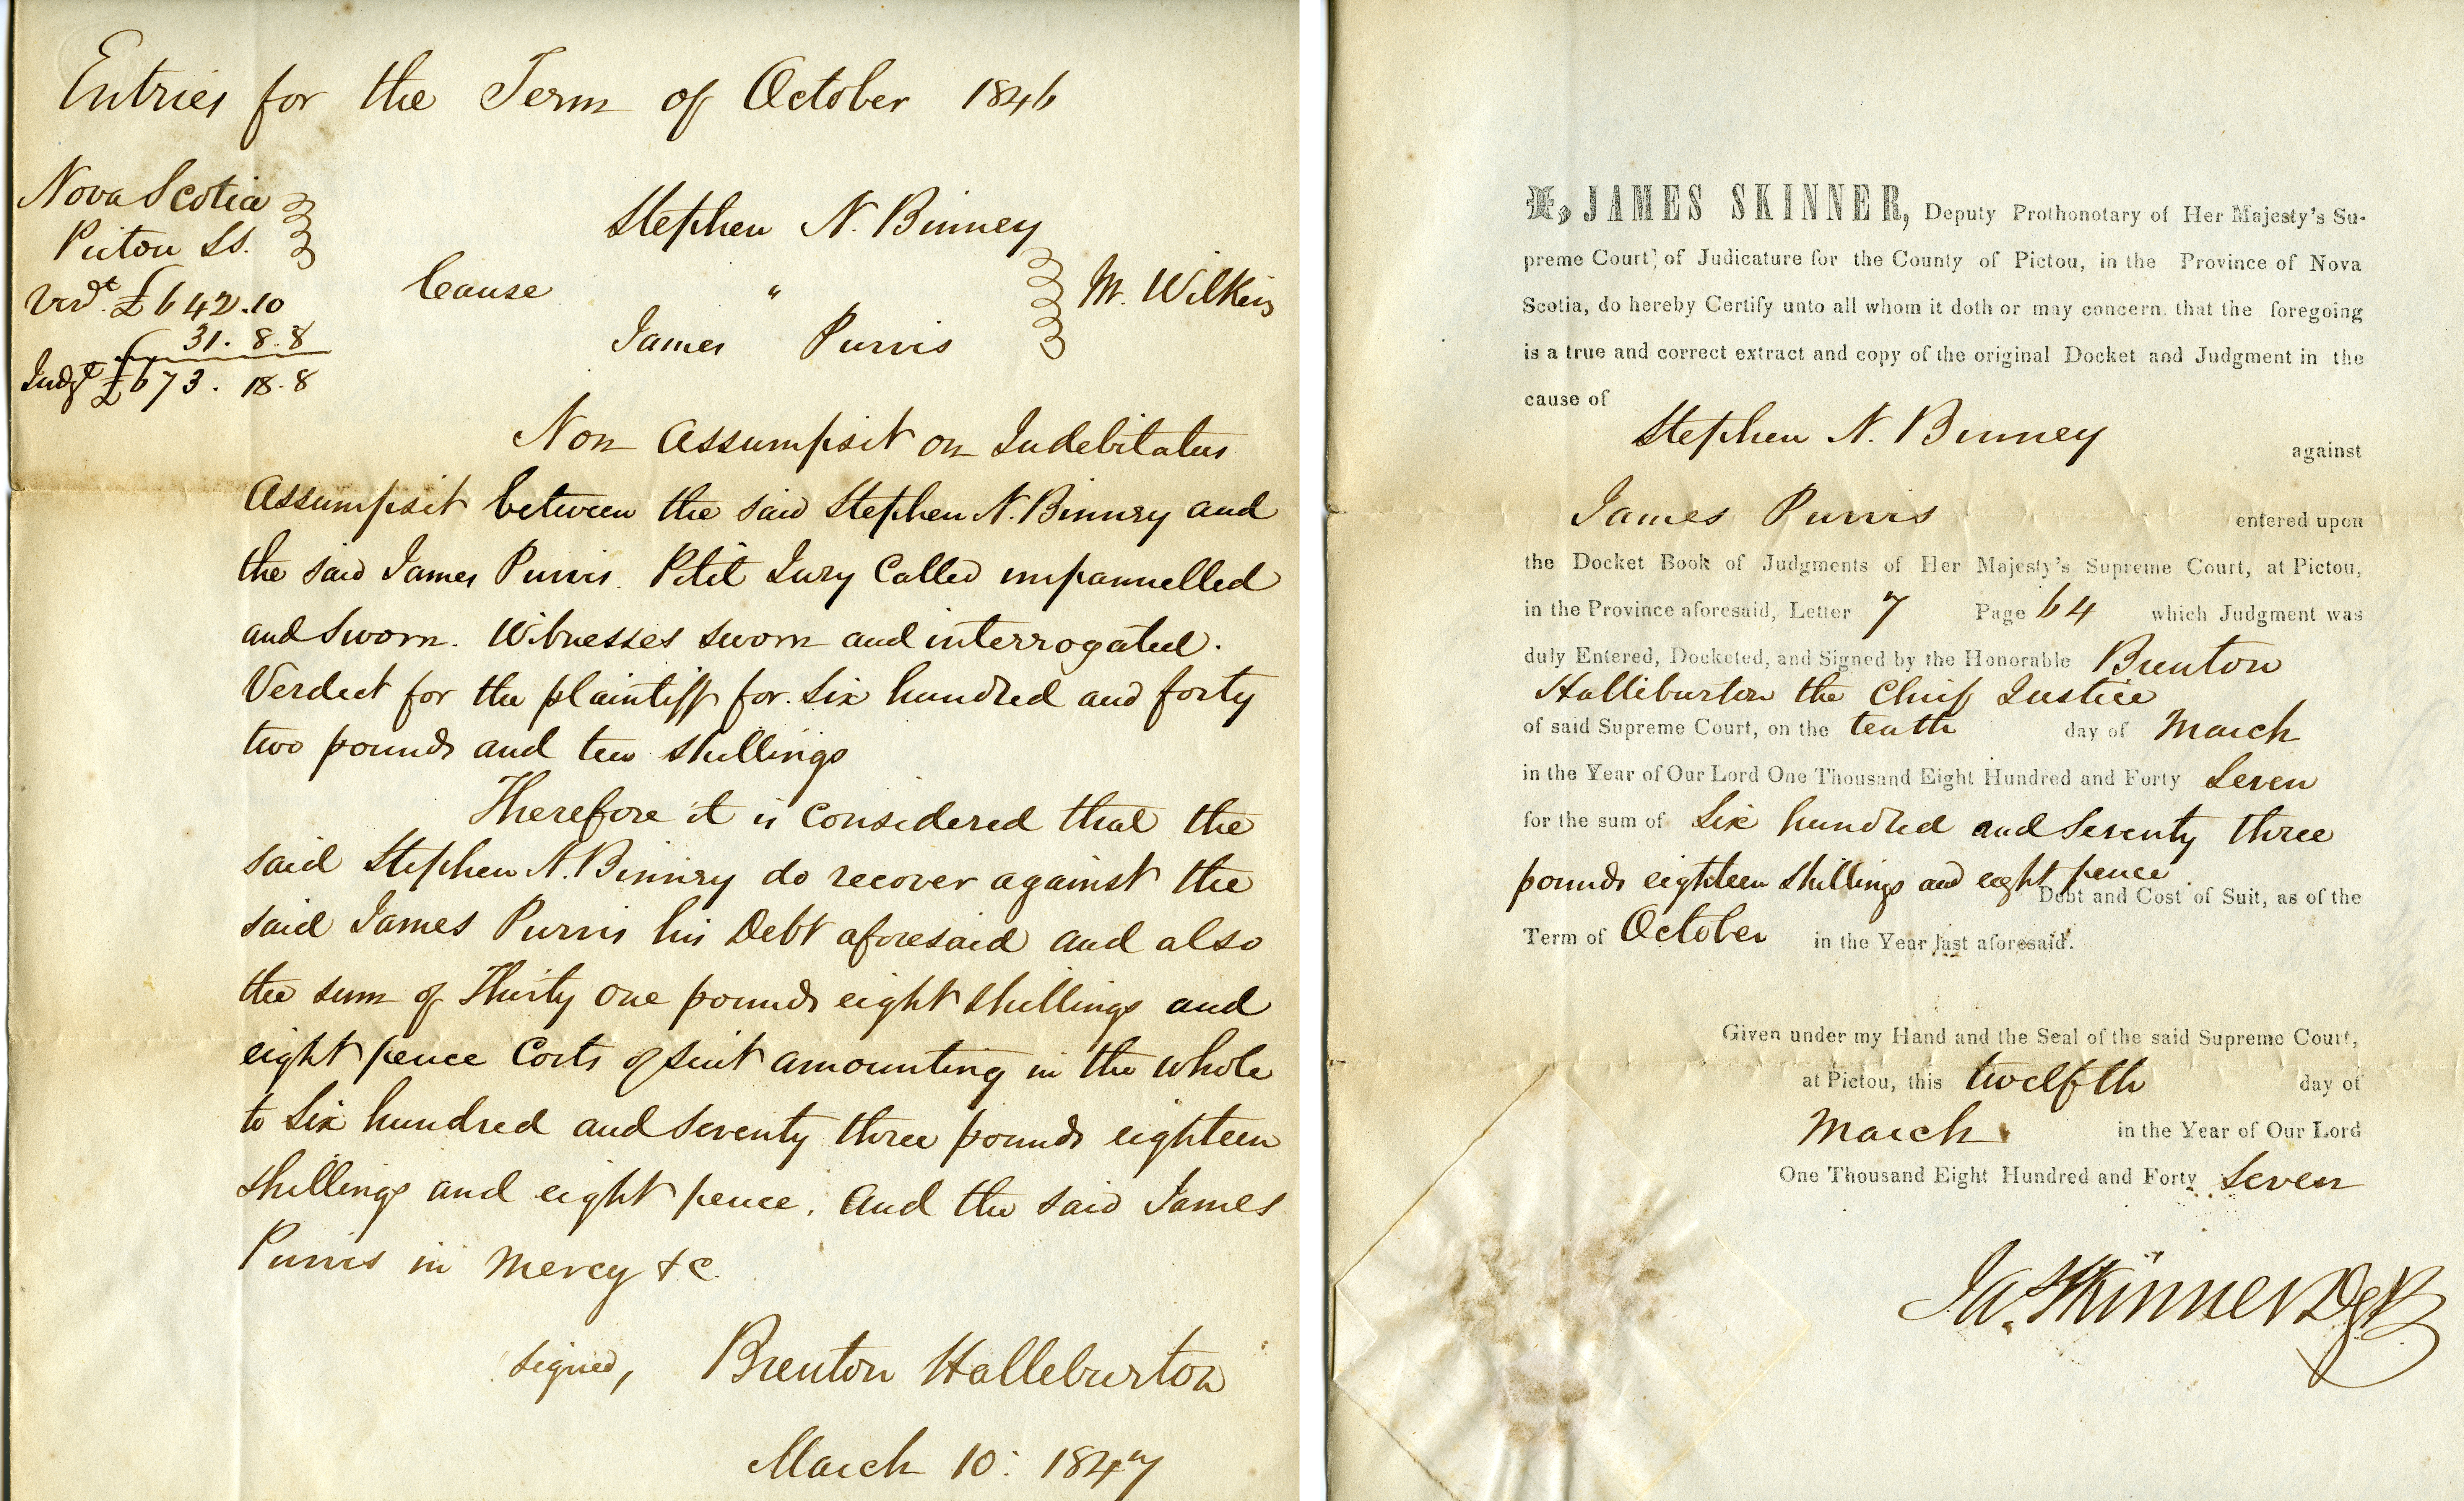 Entries for the Term of October 1846
Nova Scotia
Pictou SS.
Verdt. £642.10
31. 8. 8
Judgt £673. 18. 8
Stephen N. Binney
Cause " M. Wilkins
James Purvis
Non Assumpsit on Indebitatus
Assumpsit between the said Stephen N. Binney and
the said James Purvis. Petit Jury Called impannelled
and Sworn. Witnesses sworn and interrogated.
Verdict for the plaintiff for six hundred and forty
two pounds and ten shillings
Therefore it is Considered that the
said Stephen N. Binney do recover against the
said James Purvis his Debt aforesaid and also
the sum of Thirty One pounds eight shillings and
eight pence Costs of suit amounting in the whole
to Six hundred and seventy three pounds eighteen
shillings and eight pence. And the said James
Purvis in Mercy &c.
signed, Brenton Halleburton
March 10: 1847
I, JAMES SKINNER, Deputy Prothonotary of Her Majesty's Su-
preme Court, of Judicature for the County of Pictou, in the Province of Nova
Scotia, do hereby Certify unto all whom it doth or may concern. that the foregoing
is a true and correct extract and copy of the original Docket and Judgment in the
cause of
Stephen N. Binney against
James Purvis entered upon
the Docket Book of Judgments of Her Majesty's Supreme Court, at Pictou,
in the Province aforesaid, Letter 7 Page 64 which Judgment was
duly Entered, Docketed, and Signed by the Honorable Brenton
Halliburton the Chief Justice
of said Supreme Court, on the tenth day of March
in the Year of Our Lord One Thousand Eight Hundred and Forty Seven
for the sum of Six hundred and Seventy three
pounds eighteen shillings and eight pence.
Debt and Cost of Suit, as of the
Term of October in the Year last aforesaid.
Given under my Hand and the Seal of the said Supreme Court,
at Pictou, this twelfth day of
March in the Year of Our Lord
One Thousand Eight Hundred and Forty Seven
Ja. Skinner